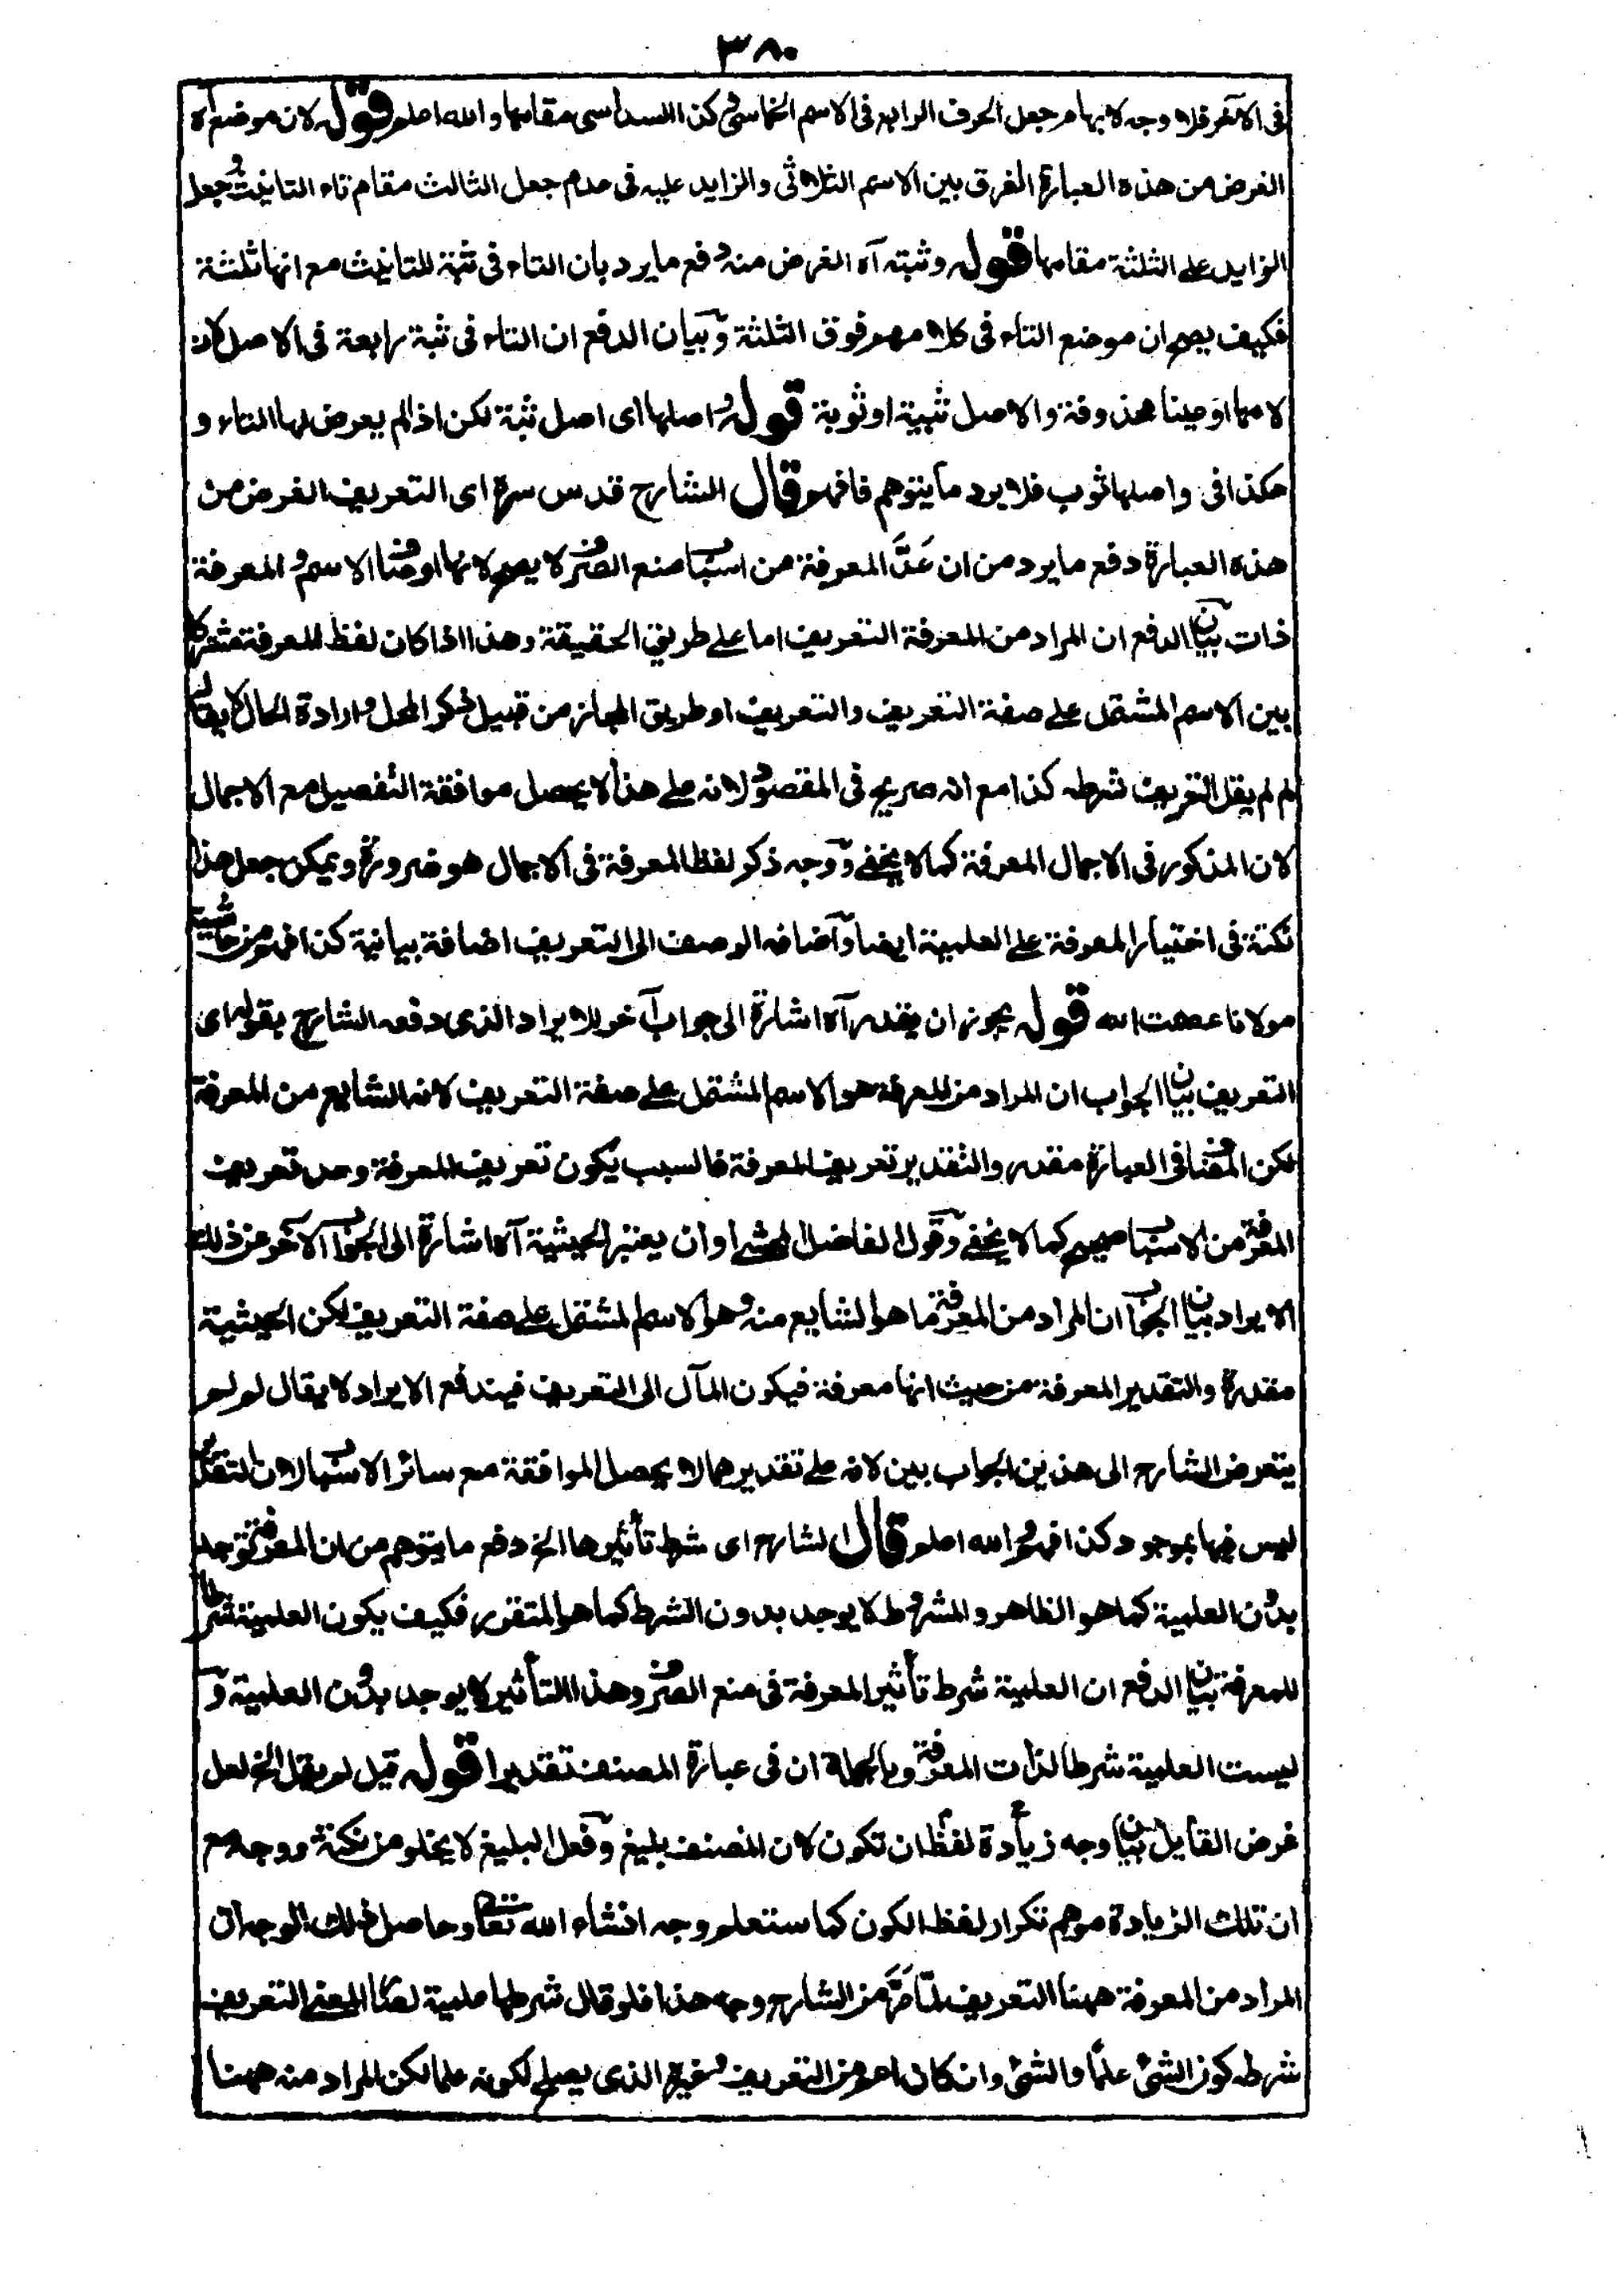 ٣٨٠
فى الآخر فلا وجه لابهام جعل الحرف الرابع فى الاسم الخماسى كن السداسى مقامها والله اعلم قوله لان موضع آه
الغرض من هذه العبارة الفرق بين الاسم الثلاثى والزايد عليه فى عدم جعل الثالث مقام تاء التانيث وجعل
الزايد على الثلثة مقامها قوله وثبته آه الغرض منه دفع ما يرد بان التاء فى ثبة للتانيث مع انها ثلثة
فكيف يصح ان موضع التاء فى كلامهم فوق الثلثة وبيان الدفع ان التاء فى ثبة رابعة فى الاصل لان
لامها او عينا محذوفة والاصل ثبية او ثوبة قوله واصلها اى اصل ثبة لكن اذا لم يعرض لها التاء و
هكذا فى واصلها ثوب فلا يرد ما يتوهم فافهم قال الشارح قدس سره اى التعريف الغرض من
هذه العبارة دفع ما يرد من ان عَدَّ المعرفة من اسباب منع الصرف لا يصح لانها اوصاف الاسم والمعرفة
ذات بيان الدفع ان المراد من المعرفة التعريف اما على طريق الحقيقة وهذا اذا كان لفظ المعرفة مشتركا
بين الاسم المشتمل على صفة التعريف والتعريف او طريق المجاز من قبيل ذكر المحل وارادة الحال لا يقال
لم لم يقل التعريف شرطه كذا مع انه صريح فى المقصود لانه على هذا لا يحصل موافقة التفصيل مع الاجمال
لان المذكور فى الاجمال المعرفة كما لا يخفى ووجه ذكر لفظ المعرفة فى الاجمال هو ضرورة ويمكن جعل هذا
نكتة فى اختيار المعرفة على العلمية ايضا واضافه الوصف الى التعريف اضافة بيانية كذا فهم من حاشية
مولانا عصمت الله قوله يجوز ان يقدر آه اشارة الى جواب آخر للايراد الذى دفعه الشارح بقوله اى
التعريف بيان الجواب ان المراد من المعرفة هو الاسم المشتمل على صفة التعريف لانه الشايع من المعرفة
لكن المضاف فى العبارة مقدر والتقدير تعريف المعرفة فالسبب يكون تعريف المعرفة وعد تعريف
المعرفة من الاسباب صحيح كما لا يخفى وقول الفاضل المحشى او ان يعتبر الحيثية آه اشارة الى الجواب الآخر عن ذلك
الايراد بيان الجواب ان المراد من المعرفة ما هو الشايع منه وهو الاسم المشتمل على صفة التعريف لكن الحيثية
مقدرة والتقدير المعرفة من حيث انها معرفة فيكون المآل الى التعريف فيندفع الايراد لا يقال لم لم
يتعرض الشارح الى هذين الجوابين لانه على تقديرهما لا يحصل الموافقة مع سائر الاسباب لان التقدير
ليس فيها بموجود كذا فهم والله اعلم قال الشارح اى شرط تأثيرها الخ دفع ما يتوهم من ان المعرفة توجد
بدون العلمية كما هو الظاهر والمشروط لا يوجد بدون الشرط كما هو المتقرر فكيف يكون العلمية شرطا
للمعرفة بيان الدفع ان العلمية شرط تأثير المعرفة فى منع الصرف وهذا التأثير لا يوجد بدون العلمية و
ليست العلمية شرطا لذات المعرفة وبالجملة ان فى عبارة المصنف تقديرا قوله قيل لم يقل الخ لعل
غرض القايل بيان وجه زيادة لفظ ان تكون لان المصنف بليغ وفعل البليغ لا يخلو من نكتة ووجه مع
ان تلك الزيادة موهم تكرار لفظ الكون كما ستعلم وجه انشاء الله تعالى وحاصل ذلك الوجه ان
المراد من المعرفة ههنا التعريف لما مَرَّ من الشارح وجه هذا فلو قال شرطها علمية لصار المعنى التعريف
شرطه كون الشئ علما والشئ وان كان اعم من التعريف وغيره الذى يصلح لكونه علما لكن المراد منه ههنا